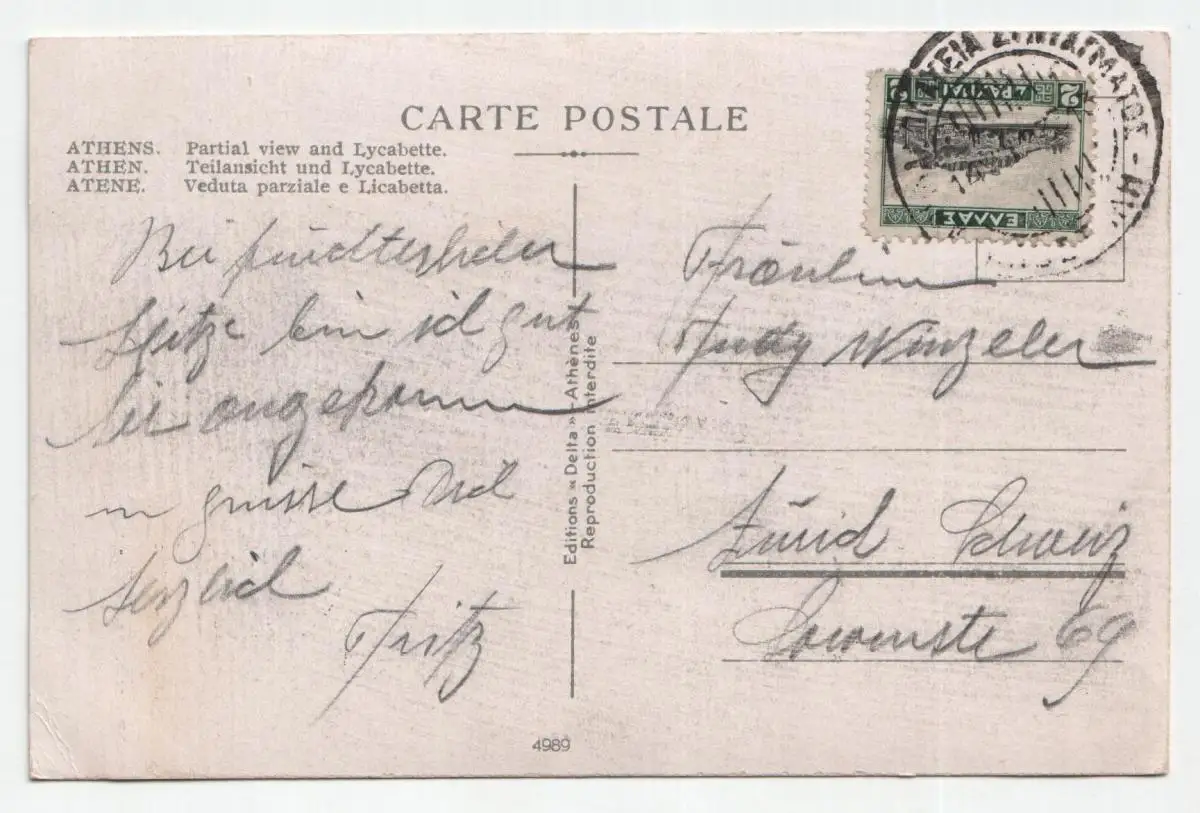 CARTE POSTALE
ATHENS. Partial view and Lycabette.
ATHEN. Teilansicht und Lycabette.
ATENE. Veduta parziale e Licabetta.
Bei fürchterlicher
Hitze bin ich gut
hier angekommen
u grüsse Dich
herzlich
Fritz
Editions «Delta» Athènes
Reproduction interdite
4989
2 ΔΡΑΧΜΑΙ 2
ΕΛΛΑΣ
ΣΥΝΤΑΓΜΑΤΟΣ
Fräulein
Winzeler
Zürich Schweiz
69